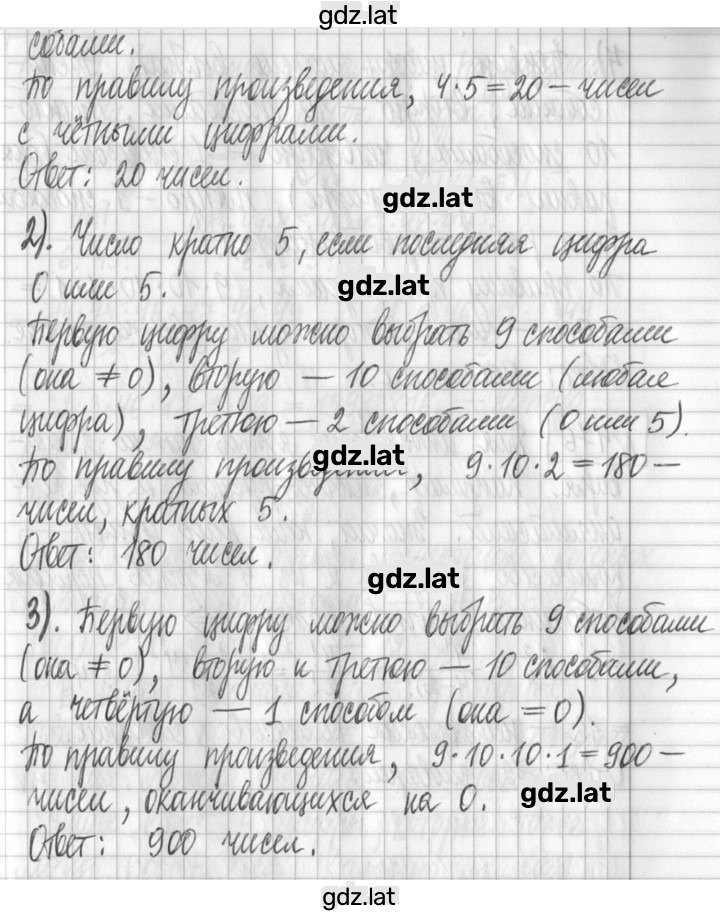 gdz.lat
собами.
По правилу произведения, 4·5=20 – чисел
с чётными цифрами.
Ответ: 20 чисел.
gdz.lat
2). Число кратно 5, если последняя цифра
0 или 5.
gdz.lat
Первую цифру можно выбрать 9 способами
(она ≠ 0), вторую – 10 способами (любая
цифра), третью – 2 способами (0 или 5).
По правилу произведения, 9·10·2=180 –
gdz.lat
чисел, кратных 5.
Ответ: 180 чисел.
gdz.lat
3). Первую цифру можно выбрать 9 способами
(она ≠ 0), вторую и третью – 10 способами,
а четвёртую – 1 способом (она = 0).
По правилу произведения, 9·10·10·1=900 –
чисел, оканчивающихся на 0.
gdz.lat
Ответ: 900 чисел.
gdz.lat